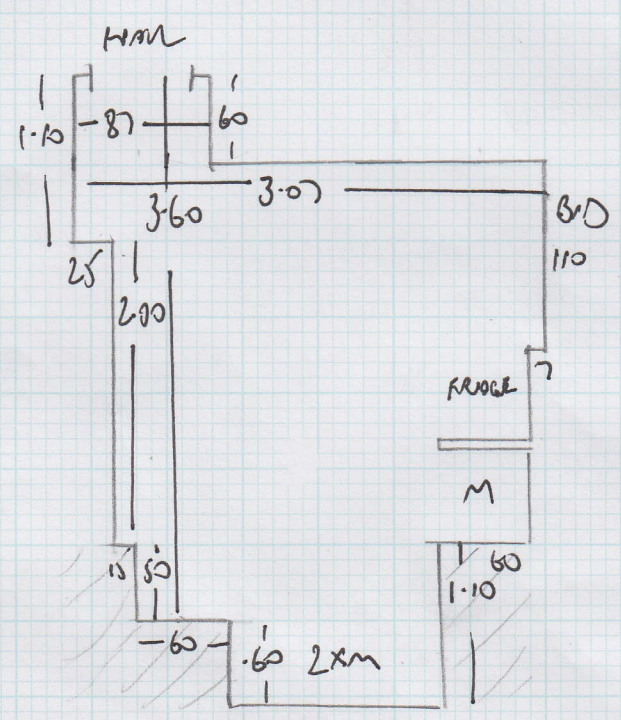 HALL
1·10
87
60
3.07
3.60
B.D
110
25
2.00
7
FRIDGE
M
15
50
60
1·10
60
·60
2XM